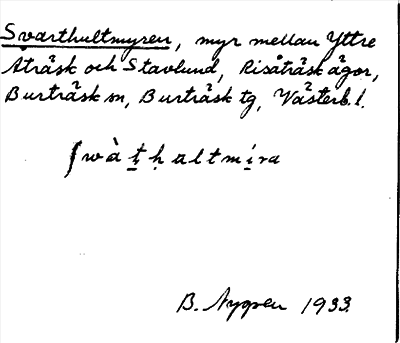 Svarthultmyren, myr mellan Yttre
Åträsk och Stavlund, Risåträsk ägor,
Burträsk sn, Burträsk tg, Västerb. l.
ʃwàṯḥaltmí̱ra
B. Nygren 1933.